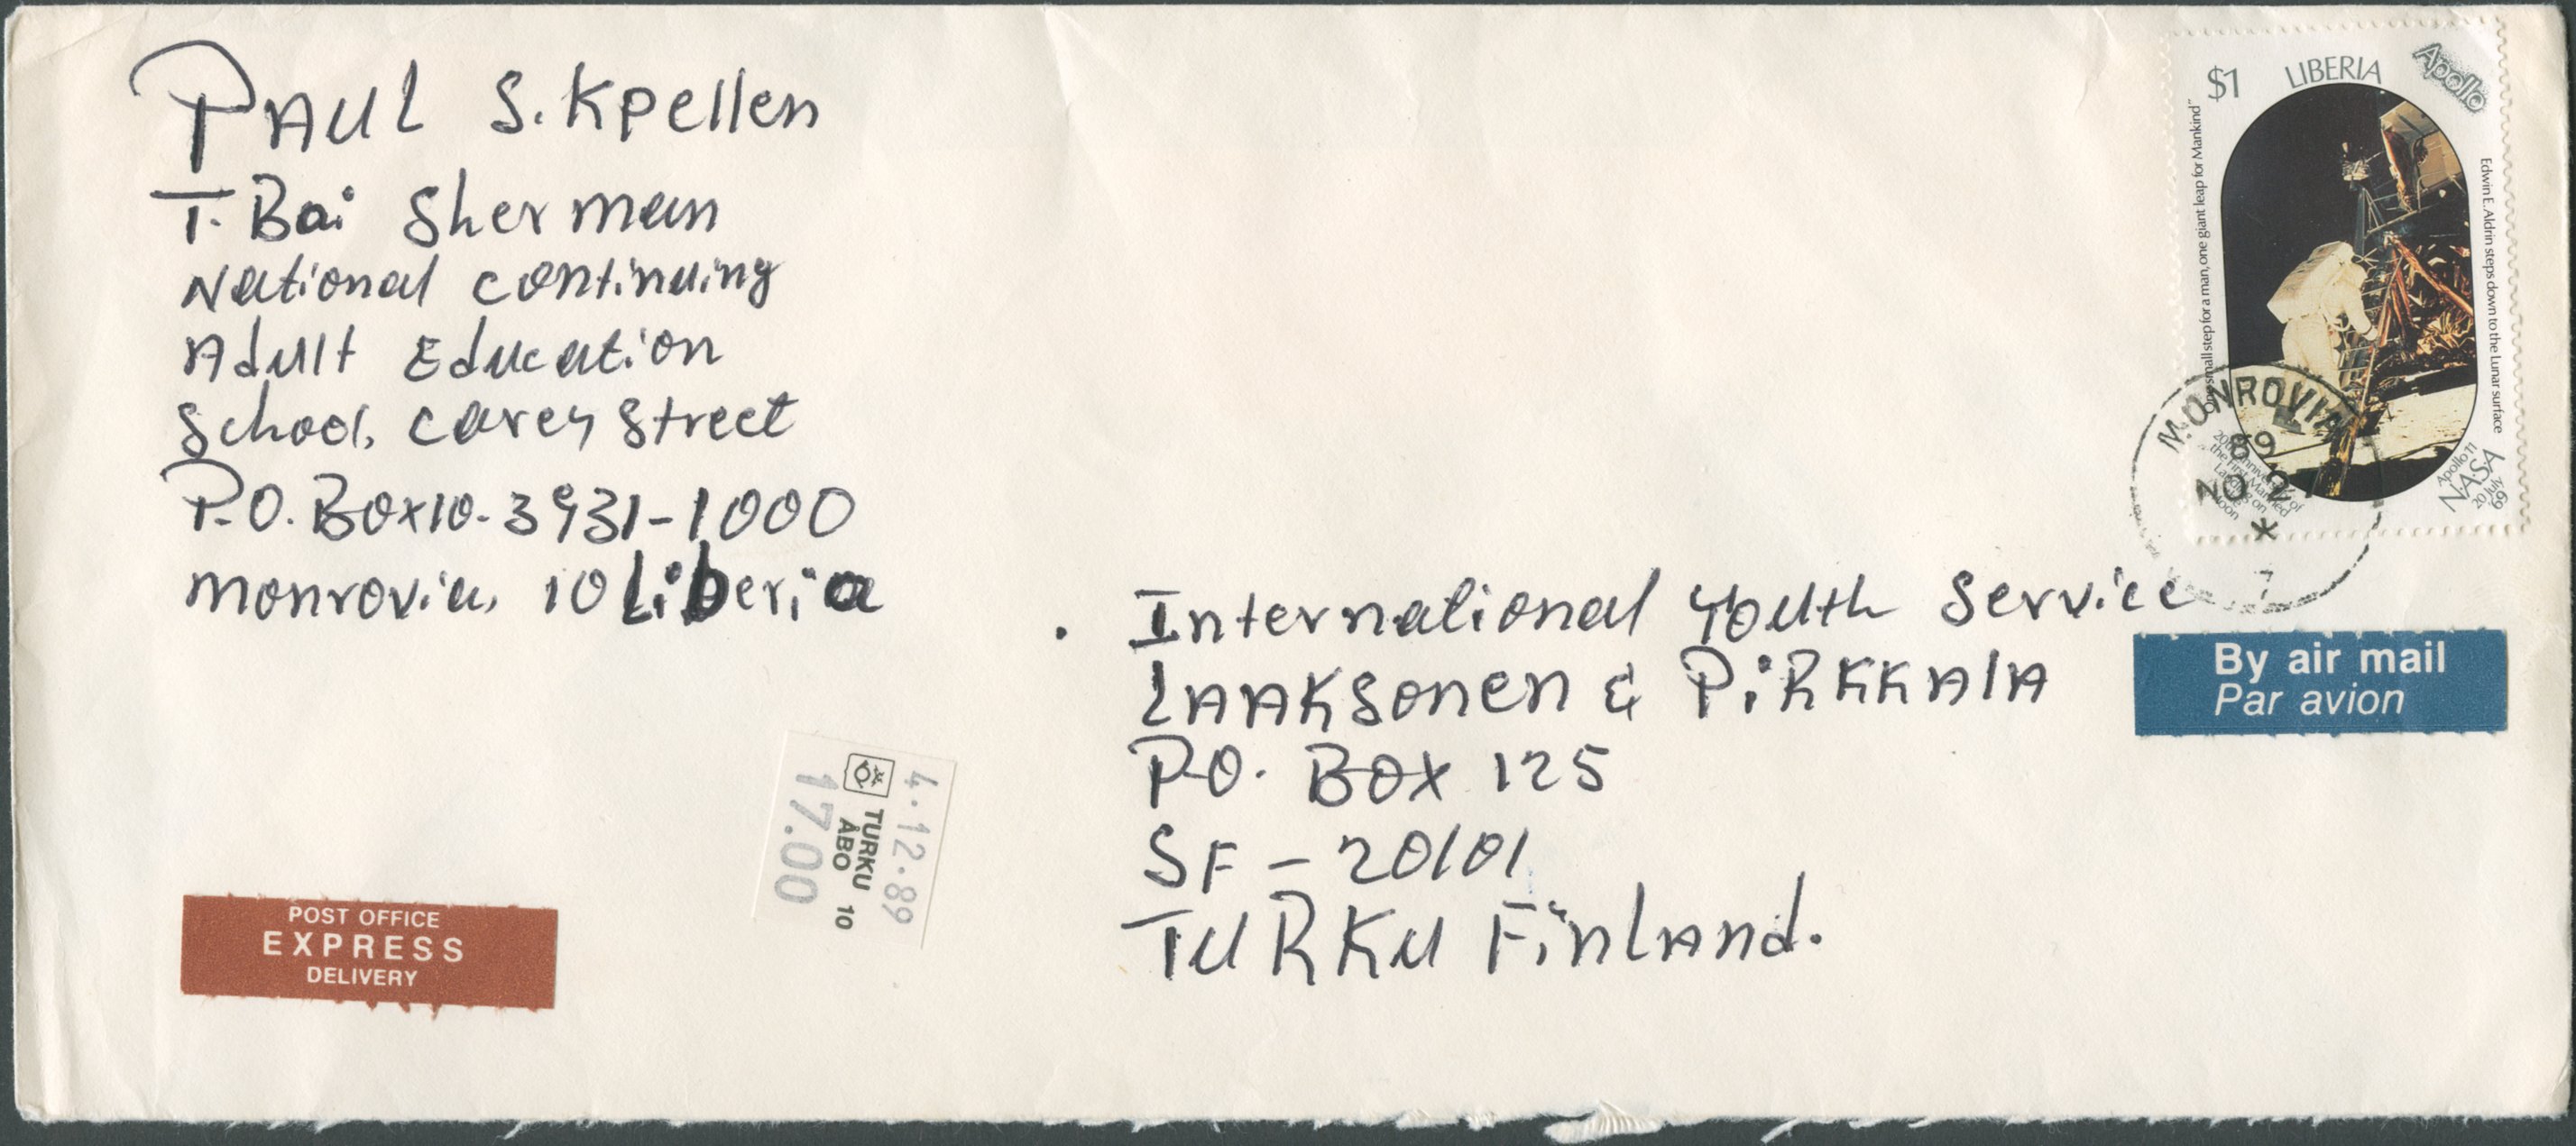 PAUL S. Kpellen
T. Bai Sherman
National continuing
Adult Education
School, Carey Street
P.O. Box 10-3931-1000
Monrovia, 10 Liberia
$1 LIBERIA Apollo
One small step for a man, one giant leap for Mankind"
Edwin E. Aldrin steps down to the Lunar surface
Apollo 11
NASA
20 July
69
MONROVIA
89
NO 2
*
7
International Youth Service
LAAKSonen & PiRKKAlA
P.O. Box 125
SF - 20101
TURKU FinLAnd.
By air mail
Par avion
4.12.89
TURKU 10
ÅBO
17.00
POST OFFICE
EXPRESS
DELIVERY